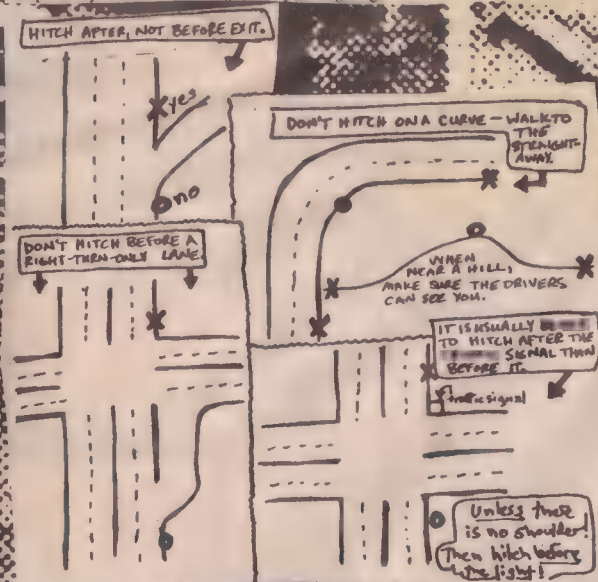 HITCH AFTER, NOT BEFORE EXIT.
yes
no
DON'T HITCH ON A CURVE — WALK TO
THE
STRAIGHT-
AWAY.
DON'T HITCH BEFORE A
RIGHT-TURN-ONLY LANE.
WHEN
NEAR A HILL,
MAKE SURE THE DRIVERS
CAN SEE YOU.
IT IS USUALLY
TO HITCH AFTER THE
SIGNAL THAN
BEFORE IT.
traffic signal
Unless there
is no shoulder!
Then hitch before
the light!